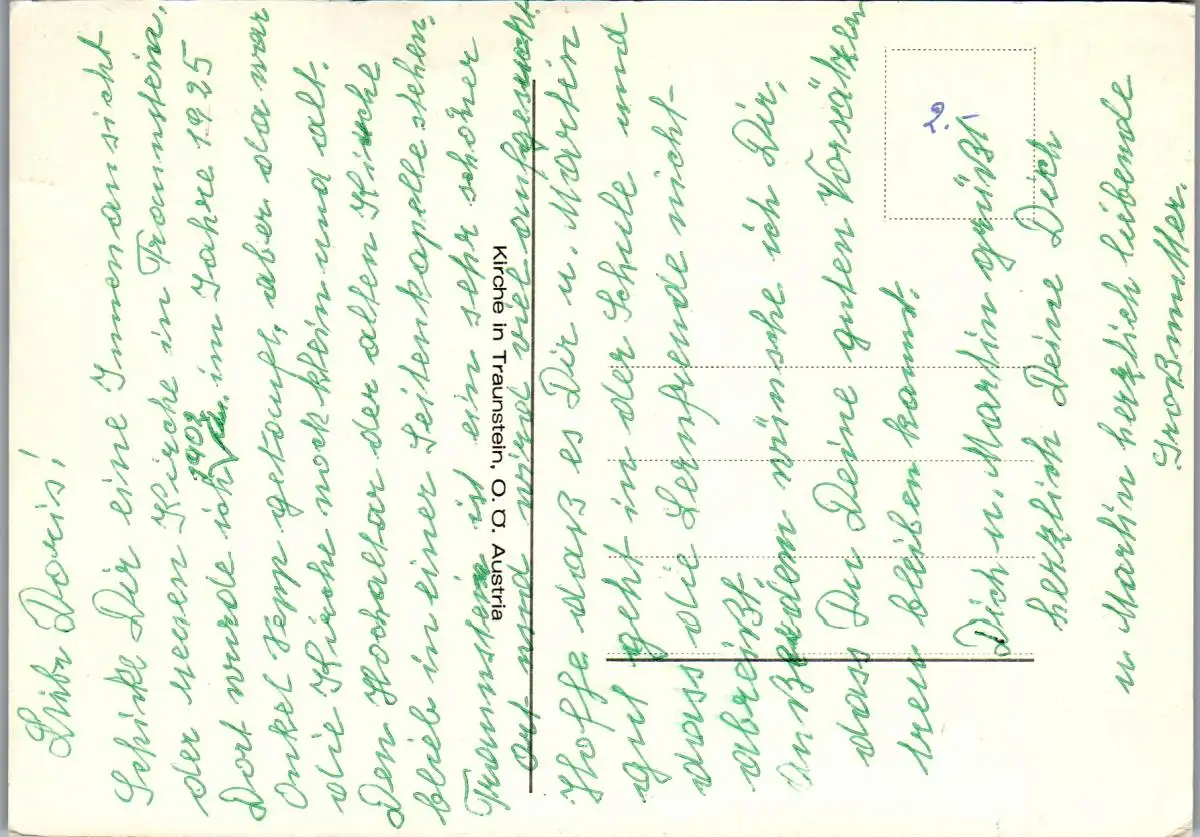 Liebe Doris!
Schicke Dir eine Innenansicht
der neuen Kirche in Traunstein.
Dort wurde ich 1903 im Jahre 1925
Onkel Sepp getauft, aber da war
die Kirche noch klein und alt.
Den Hochaltar der alten Kirche
blieb in einer Seitenkapelle stehen.
Traunstein ist ein sehr schöner
Ort und wird viel aufgesucht.
Hoffe daß es Dir u. Martin
gut geht in der Schule und
dass die Lernfreude nicht
abreißt.
Außerdem wünsche ich Dir,
dass Du Deine guten Vorsätzen
treu bleiben kannst.
Dich u. Martin grüßt
herzlich Deine Dich
u Martin herzlich liebende
Großmutter.
Kirche in Traunstein, O. Ö. Austria
2.-